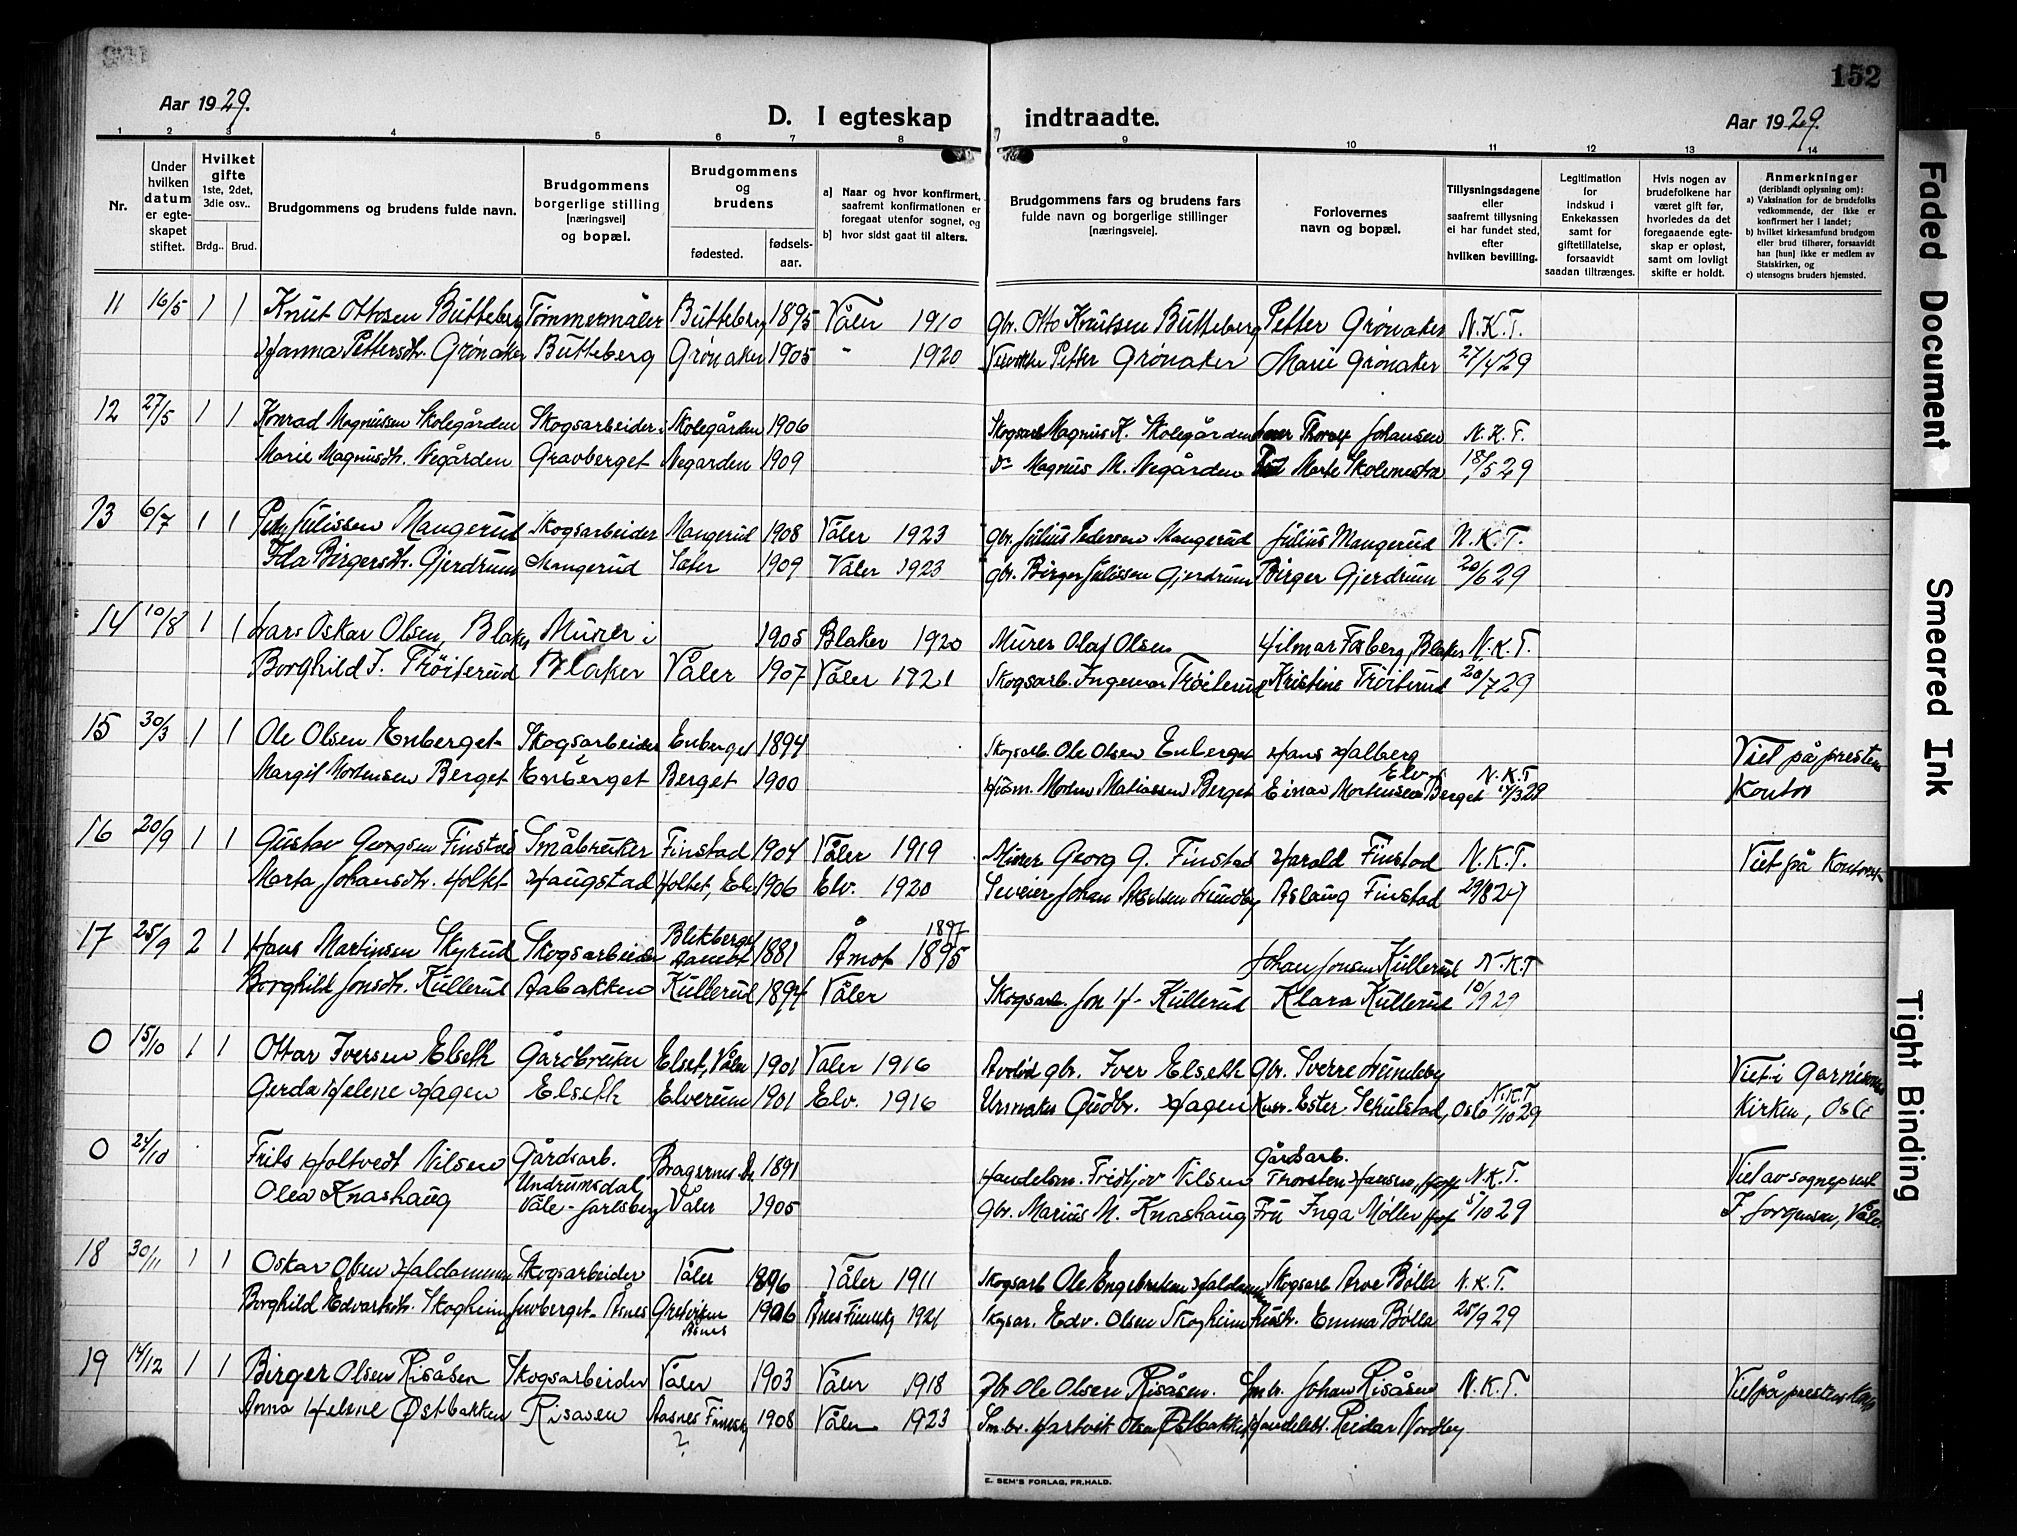 152
Aar 1929.
D. I egteskap indtraadte.
Aar 1929.
1 2 3 4 5 6 7 8 9 10 11 12 13 14
Nr.
Under hvilken datum er egte- skapet stiftet.
Hvilket gifte 1ste, 2det, 3die osv..
Brdg.. Brud.
Brudgommens og brudens fulde navn.
Brudgommens borgerlige stilling [næringsvei] og bopæl.
Brudgommens og brudens
fødested. fødsels- aar.
a) Naar og hvor konfirmert, saafremt konfirmationen er foregaat utenfor sognet, og
b) hvor sidst gaat til alters.
Brudgommens fars og brudens fars fulde navn og borgerlige stillinger [næringsveie].
Forlovernes navn og bopæl.
Tillysningsdagene eller saafremt tillysning ei har fundet sted, efter hvilken bevilling.
Legitimation for indskud i Enkekassen samt for giftetillatelse, forsaavidt saadan tiltrænges.
Hvis nogen av brudefolkene har været gift før, hvorledes da det foregaaende egte- skap er opløst, samt om lovligt skifte er holdt.
Anmerkninger (deriblandt oplysning om): a) Vaksination for de brudefolks vedkommende, der ikke er konfirmert her i landet; b) hvilket kirkesamfund brudgom eller brud tilhører, forsaavidt han [hun] ikke er medlem av Statskirken, og c) utensogns bruders hjemsted.
11 16/5 1 1 Knut Ottosen Butteberg Tømmermåler Butteberg 1895 Våler 1910 gbr. Otto Knutsen Butteberg Petter Grønaker N.K.T.
Hanna Pettersdtr. Grønaker Butteberg Grønaker 1905 - 1920 Petter Grønaker Marie Grønaker 27/4 29
12 27/5 1 1 Konrad Magnussen Skolegården Skogsarbeider Skolegården 1906 Skogsarb Magnus K. Skolegården Thoralf Johansen N.K.T.
Marie Magnusdtr. Negården Gravberget Negarden 1909 Do Magnus M. Negården Marte Skolemestra 18/5 29
13 6/7 1 1 Peder Juliussen Mangerud Skogsarbeider Mangerud 1908 Våler 1923 gbr. Julius Pedersen Mangerud Julius Mangerud N.K.T.
Ida Birgersdtr. Gjerdrum Mangerud Sæter 1909 Våler 1923 gbr. Birger Juliussen Gjerdrum Birger Gjerdrum 20/6 29
14 10/8 1 1 Lars Oskar Olsen, Blaker Murer i 1905 Blaker 1920 Murer Olaf Olsen Hilmar Fosberg, Blaker N.K.T.
Borghild I. Trøiterud Blaker Våler 1907 Våler 1921 Skogsarb. Ingemar Trøiterud Kristine Trøiterud 20/7 29
15 30/3 1 1 Ole Olsen Enberget Skogsarbeider Enberget 1894 Skogsarb. Ole Olsen Enberget Hans Halberg Viet på prestens
Elv.
Margit Mortensen Berget Enberget Berget 1900 Husm. Morten Matiassen Berget Einar Mortensen Berget N.K.T 14/3 29 Kontor
16 20/9 1 1 Gustav Georgsen Finstad Småbruker Finstad 1904 Våler 1919 Murer Georg G. Finstad Harald Finstad N.K.T. Viet på Kontoret
Marta Johansdtr. Holtet Haugstad Holtet, Elv 1906 Elv. 1920 Johan Lundby Aslaug Finstad 29/8 29
17 25/9 2 1 Hans Martinsen Skyrud Skogsarbeider Blikberget Aamot 1881 Åmot 1897 1895 Johan Jonsen Kullerud N.K.T
Borghild Jonsdtr. Kullerud Aabakken Kullerud 1894 Våler Skogsarb. Jon H. Kullerud Klara Kullerud 10/9 29
0 15/10 1 1 Ottar Iversen Elseth Gårdbruker Elset, Våler 1901 Våler 1916 Avdød gbr. Iver Elseth Gbr. Sverre Lundeby Viet i Garnisons
Gerda Helene Hagen Elseth Elverum 1901 Elv. 1916 Urmaker Gudbr. Hagen Ester Skulstad, Oslo N.K.T 1/10 29 Kirken, Oslo
0 24/10 Frits Holtvedt Nilsen Gårdsarb. Bragernes Dr. 1891 Handelsm. Fridtjov Nilsen Gårdsarb. Thorsten Hansen, Hof N.K.T. Viet av sogneprest
Olea Knashaug Undrumsdal Våle - Jarlsberg Våler 1905 gbr. Marius M. Knashaug Fru Inga Møller Hof 5/10 29 F. Jørgensen, Våler
18 30/11 1 1 Oskar Olsen Haldammen Skogsarbeider Våler 1896 Våler 1911 Skogsarb Ole Engebretsen Haldammen Skogsarb Arve Bølla N.K.T.
Borghild Edvartsdtr. Skogheim Juvberget - Åsnes Åsnes 1906 Åsnes Finnskg 1921 Skogsar. Edv. Olsen Skogheim Hustr. Emma Bølla 25/9 29
19 14/12 1 1 Birger Olsen Risåsen Skogsarbeider Våler 1903 Våler 1918 Gbr. Ole Olsen Risåsen. Smbr. Johan Risåsen N.K.T. Viet på prestens
Anna Helene Østbakken Risåsen Aasnes Finnskg 1908 Våler 1923 Smbr. Hartvik Olsen Østbakken Handelsbt. Reidar Nordby
?
E. SEM'S FORLAG, FR.HALD.
Faded Document
Smeared Ink
Tight Binding